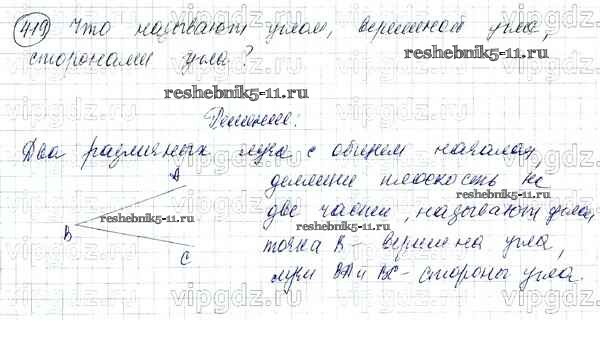 419 Что называют углом, вершиной угла,
сторонами угла?
reshebnik5-11.ru
Решение:
Два различных луча с общим началом,
A
делящие плоскость на
reshebnik5-11.ru
две части, называют углом,
reshebnik5-11.ru
B
точка В - вершина угла,
C
лучи ВА и ВС - стороны угла.
vipgdz.ru